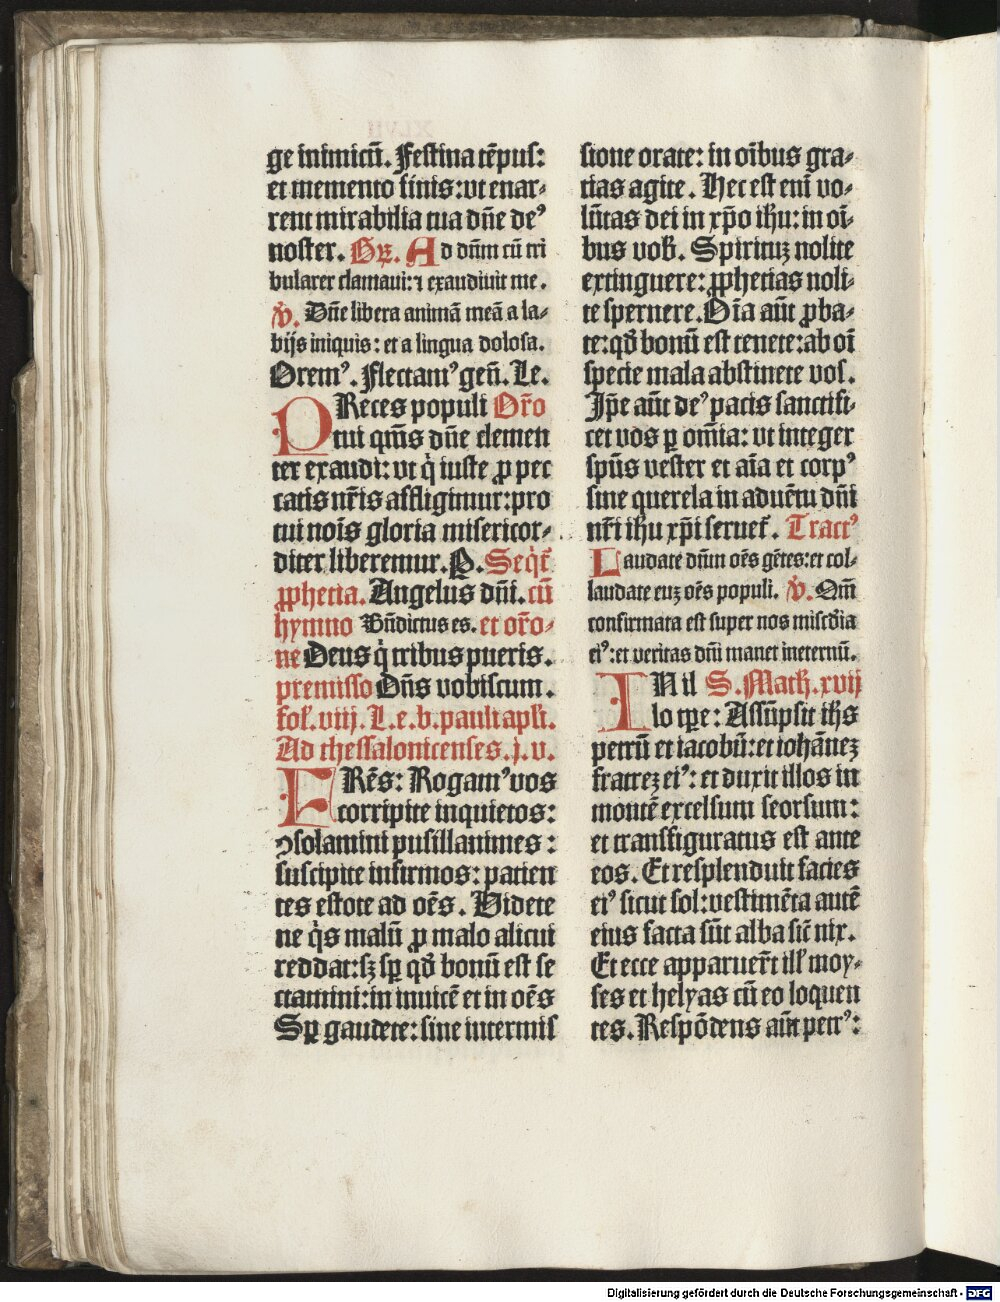 ge inimicū. Festina tēpus:
et memento finis: vt enar⸗
rent mirabilia tua dn̄e deꝰ
noster. Gr̄. Ad dn̄m cū tri
bularer clamaui: ⁊ exaudiuit me.
v̓. Dn̄e libera animā meā a la⸗
bijs iniquis: et a lingua dolosa.
Oremꝰ. Flectamꝰ gen̄. Le.
PReces populi Or̄o
tui qm̄s dn̄e clemen
ter exaudi: vt q̇ iuste ꝓ pec
catis nr̄is affligimur: pro
tui nois̄ gloria misericor⸗
diter liberemur. P. Seqt̄
ꝓphetia. Angelus dn̄i. cū
hymno Bn̄dictus es. et or̄o⸗
ne Deus q̇ tribus pueris.
premisso Dn̄s vobiscum.
fol. viij. L. e. b. pauli apl̄i.
Ad thessalonicenses. j. v.
FRēs: Rogamꝰ vos
corripite inquietos:
ꝯsolamini pusillanimes:
suscipite infirmos: patien
tes estote ad oēs. Videte
ne q̇s malū ꝓ malo alicui
reddat: sꝫ sp̄ qd̄ bonū est se
ctamini: in inuicē et in oēs
Sp̄ gaudete: sine intermis
sione orate: in oībus gra⸗
cias agite. Hec est enī vo⸗
lūtas dei in xp̄o ihu: in oī⸗
bus vob̄. Spirituꝫ nolite
extinguere: ꝓphetias noli⸗
te spernere. Oīa aūt ꝓba⸗
te: qd̄ bonū est tenete: ab oī
specie mala abstinete vos.
Ip̄e aūt deꝰ pacis sanctifi⸗
cet vos ꝑ om̄ia: vt integer
spūs vester et aīa et corpꝰ
sine querela in aduētu dn̄i
nr̄i ihu xp̄i seruet̄. Tractꝰ
Laudate dn̄m oēs gētes: et col⸗
laudate euꝫ oēs populi. v̓. Qm̄
confirmata est super nos misc̄dia
eiꝰ: et veritas dn̄i manet ineternū.
IN il S. Math. xvij
lo tꝑe: Assūpsit ihs
petrū et iacobū: et iohāneꝫ
fratreꝫ eiꝰ: et duxit illos in
montē excelsum seorsum:
et transfiguratus est ante
eos. Et resplenduit facies
eiꝰ sicut sol: vestimēta autē
eius facta sūt alba sic̄ nix.
Et ecce apparuer̄t ill̓ moy⸗
ses et helyas cū eo loquen
tes. Respōdens aūt petrꝰ:
Digitalisierung gefördert durch die Deutsche Forschungsgemeinschaft - DFG